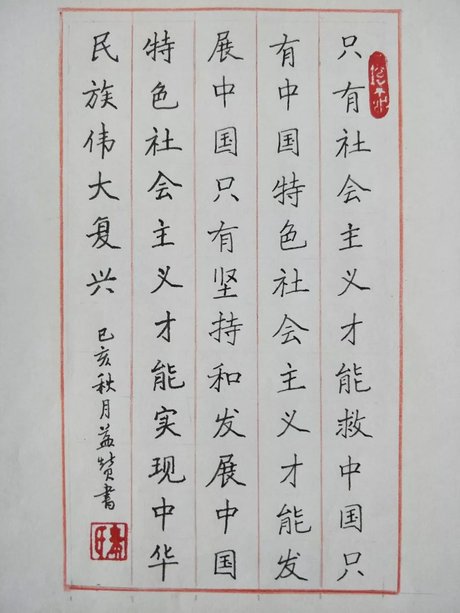 只有社会主义才能救中国只
有中国特色社会主义才能发
展中国只有坚持和发展中国
特色社会主义才能实现中华
民族伟大复兴
己亥秋月益赞书